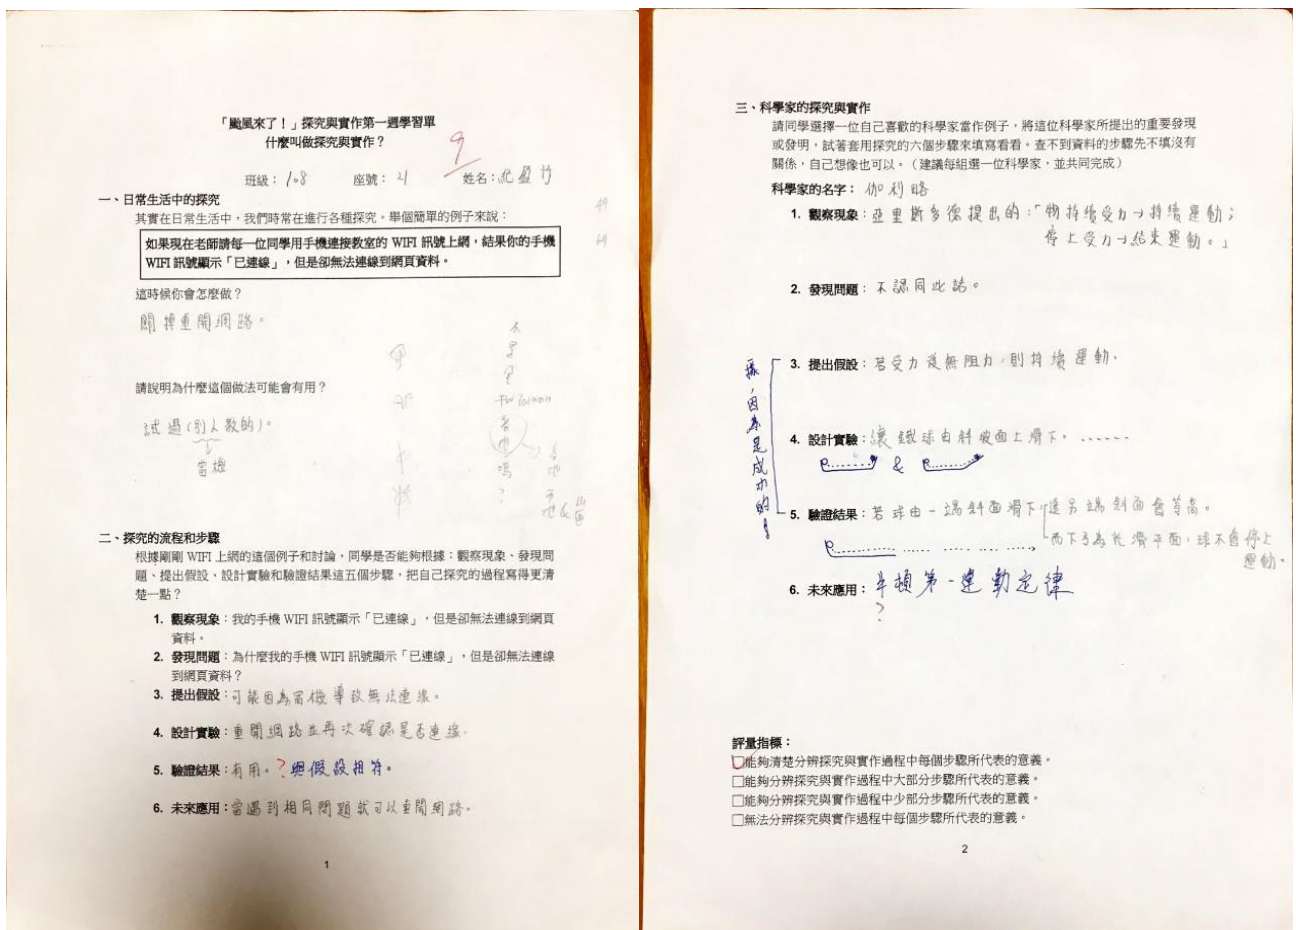 「颱風來了！」探究與實作第一週學習單
什麼叫做探究與實作？
9
班級：108 座號：21 姓名：
一、日常生活中的探究
其實在日常生活中，我們時常在進行各種探究。舉個簡單的例子來說：
如果現在老師請每一位同學用手機連接教室的 WIFI 訊號上網，結果你的手機
WIFI 訊號顯示「已連線」，但是卻無法連線到網頁資料。
這時候你會怎麼做？
關掉重開網路。
請說明為什麼這個做法可能會有用？
試過(別人教的)。
當機
二、探究的流程和步驟
根據剛剛 WIFI 上網的這個例子和討論，同學是否能夠根據：觀察現象、發現問
題、提出假設、設計實驗和驗證結果這五個步驟，把自己探究的過程寫得更清
楚一點？
1. 觀察現象：我的手機 WIFI 訊號顯示「已連線」，但是卻無法連線到網頁
資料。
2. 發現問題：為什麼我的手機 WIFI 訊號顯示「已連線」，但是卻無法連線
到網頁資料？
3. 提出假設：可能因為當機導致無法連線。
4. 設計實驗：重開網路並再次確認是否連線。
5. 驗證結果：有用。？與假設相符。
6. 未來應用：當遇到相同問題就可以重開網路。
1
三、科學家的探究與實作
請同學選擇一位自己喜歡的科學家當作例子，將這位科學家所提出的重要發現
或發明，試著套用探究的六個步驟來填寫看看。查不到資料的步驟先不填沒有
關係，自己想像也可以。（建議每組選一位科學家，並共同完成）
科學家的名字：伽利略
1. 觀察現象：亞里斯多德提出的：「物持續受力→持續運動；
停止受力→結束運動。」
2. 發現問題：不認同此話。
3. 提出假設：若受力後無阻力，則持續運動。
4. 設計實驗：讓鐵球由斜坡面上滑下。……
&
5. 驗證結果：若球由一端斜面滑下，達另端斜面會等高。
而下子為光滑平面，球不會停止
運動。
因為是成功的！
6. 未來應用：牛頓第一運動定律
？
評量指標：
□能夠清楚分辨探究與實作過程中每個步驟所代表的意義。
□能夠分辨探究與實作過程中大部分步驟所代表的意義。
□能夠分辨探究與實作過程中少部分步驟所代表的意義。
□無法分辨探究與實作過程中每個步驟所代表的意義。
2